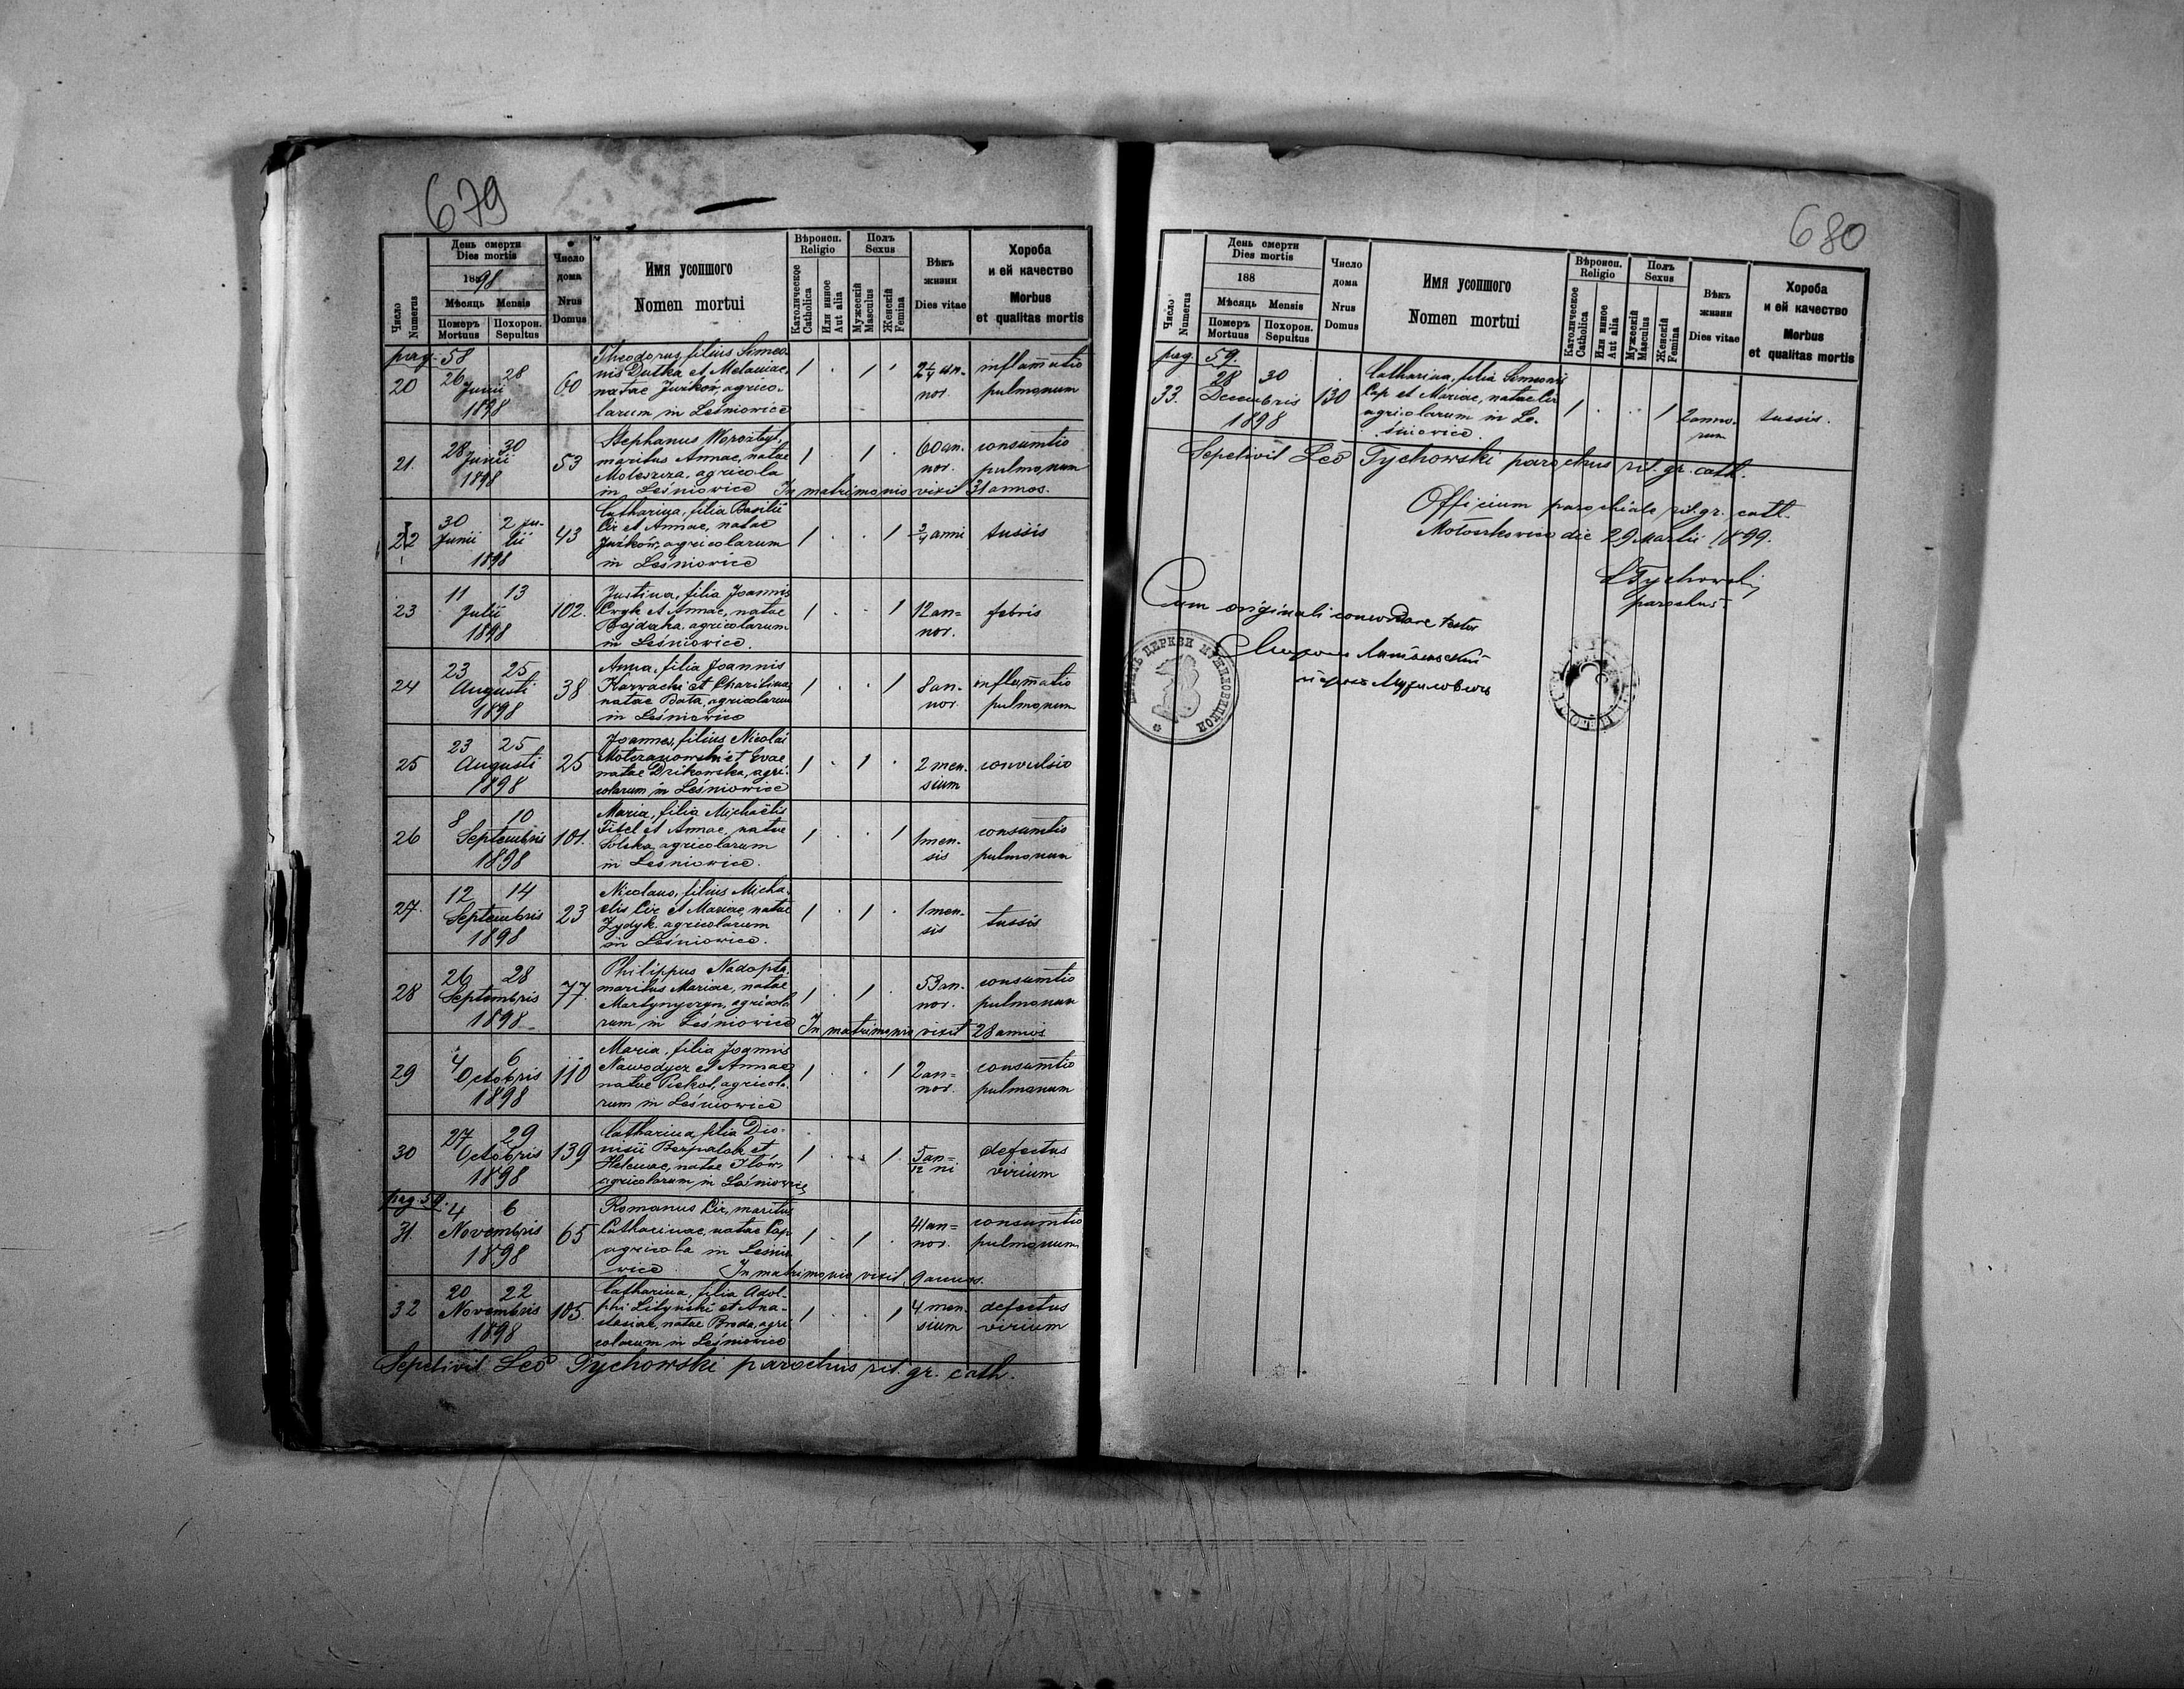 679
День смерти
Dies mortis
1898
Мѣсяць Mensis
Число
Numerus
Померъ
Mortuus
Похорон.
Sepultus
Число
дома
Nrus
Domus
Имя усопшого
Nomen mortui
Вѣроисп.
Religio
Католическое
Catholica
Или инное
Aut alia
Полъ
Sexus
Мужескій
Masculus
Женскій
Femina
Вѣкъ
жизни
Dies vitae
Хороба
и ей качество
Morbus
et qualitas mortis
pag. 58
20
26 28
Junii
1898
60
Theodorus, filius Simeo-
nis Dutka et Melaniae,
natae Jurków, agrico-
larum in Leśniowice
2 1/4 an-
nor.
inflam̄atio
pulmonum
21.
28 30
Junii
1898
53
Stephanus
maritus Annae, natae
agricola
in Leśniowice In matrimonio vixit 31 annos.
60 an.
nor.
consumtio
pulmonum
22
30 2 Ju-
Junii lii
1898
43
Catharina, filia Basilii
Cir et Annae, natae
Jurków, agricolarum
in Leśniowice
3/4 anni
tussis
23
11 13
Julii
1898
102.
Justina, filia Joannis
et Annae, natae
Bajdaka, agricolarum
in Leśniowice.
12 an=
nor.
febris
24
23 25
Augusti
1898
38
Anna, filia Joannis
Karwacki et Charitinae,
natae Bata, agricolarum
in Leśniowice
8 an-
nor.
inflam̄atio
pulmonum
25
23 25
Augusti
1898
25
Joannes, filius Nicolai
Molczanowski et Evae
natae Drikowska, agri-
colarum in Leśniowice
2 men.
sium
convulsio
26
8 10
Septembris
1898
101.
Maria, filia Michaëlis
Fitel et Annae, natae
Solska, agricolarum
in Leśniowice.
1 men.
sis
consumtio
pulmonum
27.
12 14
Septembris
1898
23
Nicolaus, filius Micha-
elis Cir et Mariae, natae
Zydyk, agricolarum
in Leśniowice.
1 men.
sis
tussis
28
26 28
Septembris
1898
77.
Philippus Nadopta,
maritus Mariae, natae
Martynyczyn, agricola-
rum in Leśniowice In matrimonio vixit 28 annos
53 an.
nor.
consumtio
pulmonum
29
4 6
Octobris
1898
110
Maria, filia Joannis
Nawodycz et Annae
natae Piekoś, agricola-
rum in Leśniowice
2 an=
nor.
consumtio
pulmonum
30
27 29
Octobris
1898
139
Catharina, filia Dio-
nisii Bezpalok et
Helenae, natae Itów,
agricolarum in Leśniowice
5/12 an=
ni
defectus
virium
pag. 59.
31.
4 6
Novembris
1898
65
Romanus Cir, maritus
Catharinae, natae Cap
agricola in Leśnio
wice. In matrimonio vixit 9 annos.
41 an=
nor.
consumtio
pulmonum
32
20 22
Novembris
1898
105.
Catharina, filia Adol-
phi Litynski et Ana-
stasiae, natae Broda, agri
colarum in Leśniowice
4 men.
sium
defectus
virium
Sepelivit Leo Tychowski parochus rit. gr. cath.
680
День смерти
Dies mortis
188
Мѣсяць Mensis
Число
Numerus
Померъ
Mortuus
Похорон.
Sepultus
Число
дома
Nrus
Domus
Имя усопшого
Nomen mortui
Вѣроисп.
Religio
Католическое
Catholica
Или инное
Aut alia
Полъ
Sexus
Мужескій
Masculus
Женскій
Femina
Вѣкъ
жизни
Dies vitae
Хороба
и ей качество
Morbus
et qualitas mortis
pag. 59.
33.
28 30
Decembris
1898
130
Catharina, filia Simeonis
Cap et Mariae, natae Cir
agricolarum in Le-
śniowice.
2 anno-
rum
tussis.
Sepelivit Leo Tychowski parochus rit. gr. cath.
Officium parochiale rit. gr. cath.
Mołoszkowice die 29 Martii 1899.
LTychowski
parochus
Cum originali concordare testor